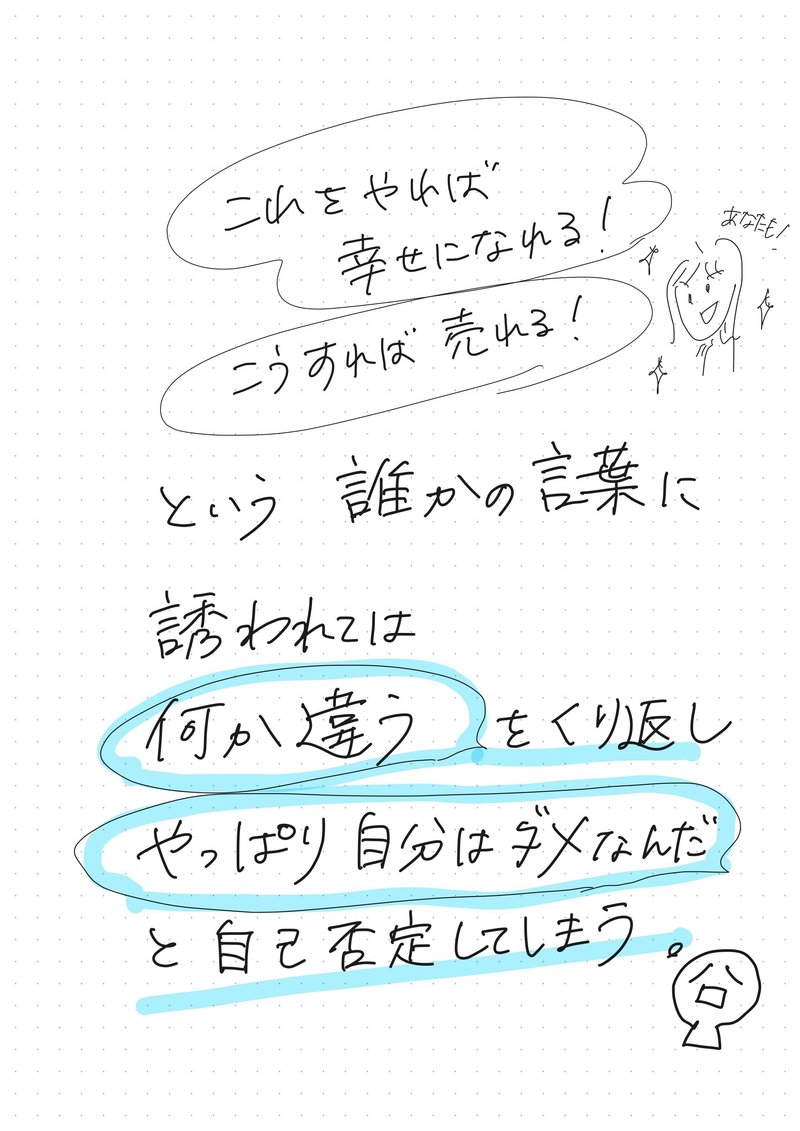 これをやれば
幸せになれる!
あなたも!
こうすれば 売れる!
という 誰かの言葉に
誘われては
何か違う をくり返し
やっぱり 自分はダメなんだ
と 自己否定してしまう。